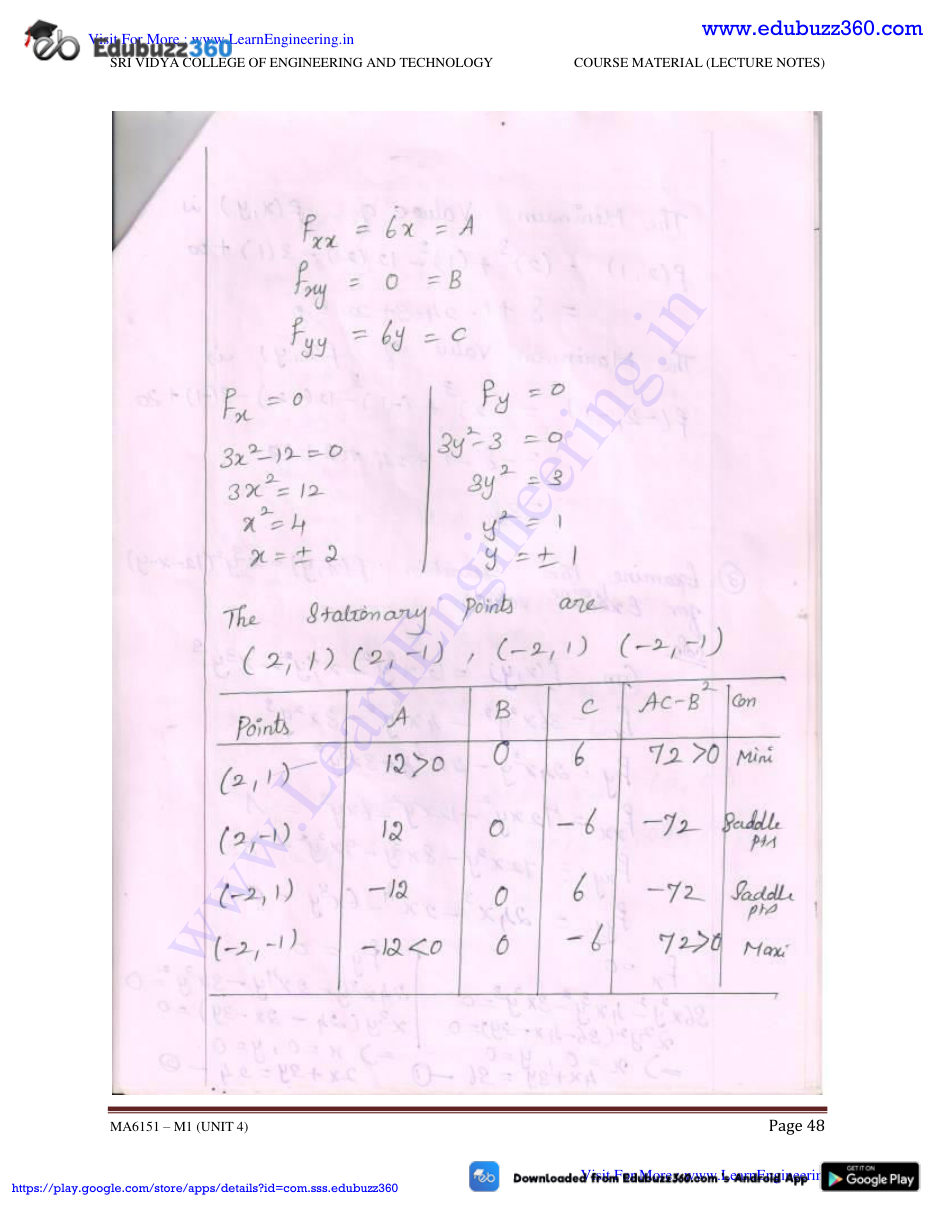 www.edubuzz360.com
Visit For More : www.LearnEngineering.in
Edubuzz360
SRI VIDYA COLLEGE OF ENGINEERING AND TECHNOLOGY COURSE MATERIAL (LECTURE NOTES)
f_xx = 6x = A
f_xy = 0 = B
f_yy = 6y = C
f_x = 0 f_y = 0
3x²-12 = 0 3y²-3 = 0
3x² = 12 3y² = 3
x² = 4 y² = 1
x = ± 2 y = ± 1
The Stationary Points are
(2, 1) (2, -1) , (-2, 1) (-2, -1)
Points A B C AC-B² Con
(2, 1) 12>0 0 6 72 >0 Mini
(2, -1) 12 0 -6 -72 Saddle
pts
(-2, 1) -12 0 6 -72 Saddle
pts
(-2, -1) -12<0 0 -6 72>0 Maxi
www.LearnEngineering.in
MA6151 – M1 (UNIT 4) Page 48
https://play.google.com/store/apps/details?id=com.sss.edubuzz360
Downloaded from EduBuzz360.com 's Android App
GET IT ON
Google Play